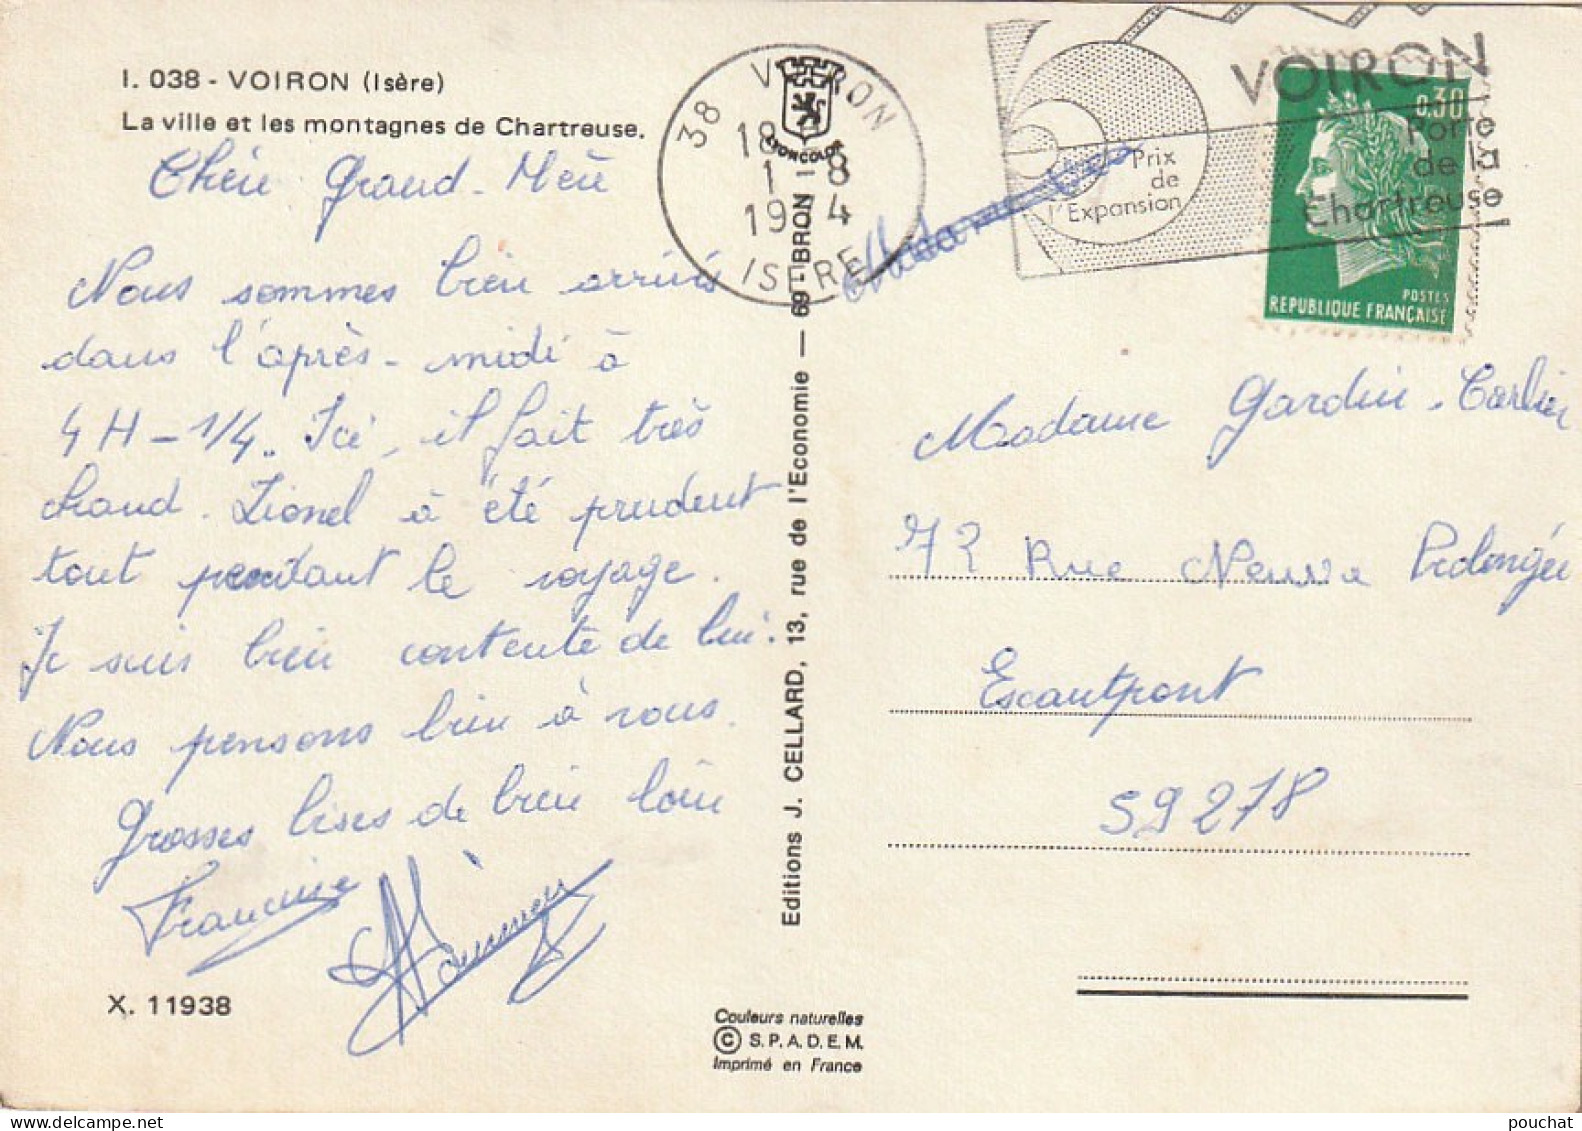 I. 038 - VOIRON (Isère)
La ville et les montagnes de Chartreuse.
Chère Grand-Mère
Nous sommes bien arrivés
dans l'après-midi à
4 H - 1/4. Ici, il fait très
chaud. Lionel à été prudent
tout pendant le voyage.
Je suis bien contente de lui.
Nous pensons bien à vous.
Grosses bises de bien loin
Francine
X. 11938
38 VOIRON
18 H
1-8
1974
ISERE
LYONCOLOR
Editions J. CELLARD, 13, rue de l'Economie — 69 - BRON
Couleurs naturelles
© S.P.A.D.E.M.
Imprimé en France
Prix
de
l'Expansion
VOIRON
Porte
de la
Chartreuse
0,30
POSTES
REPUBLIQUE FRANÇAISE
Madame
Madame Gardin-Carlier
72 Rue Neuve Prolongée
Escautpont
59278
pouchat